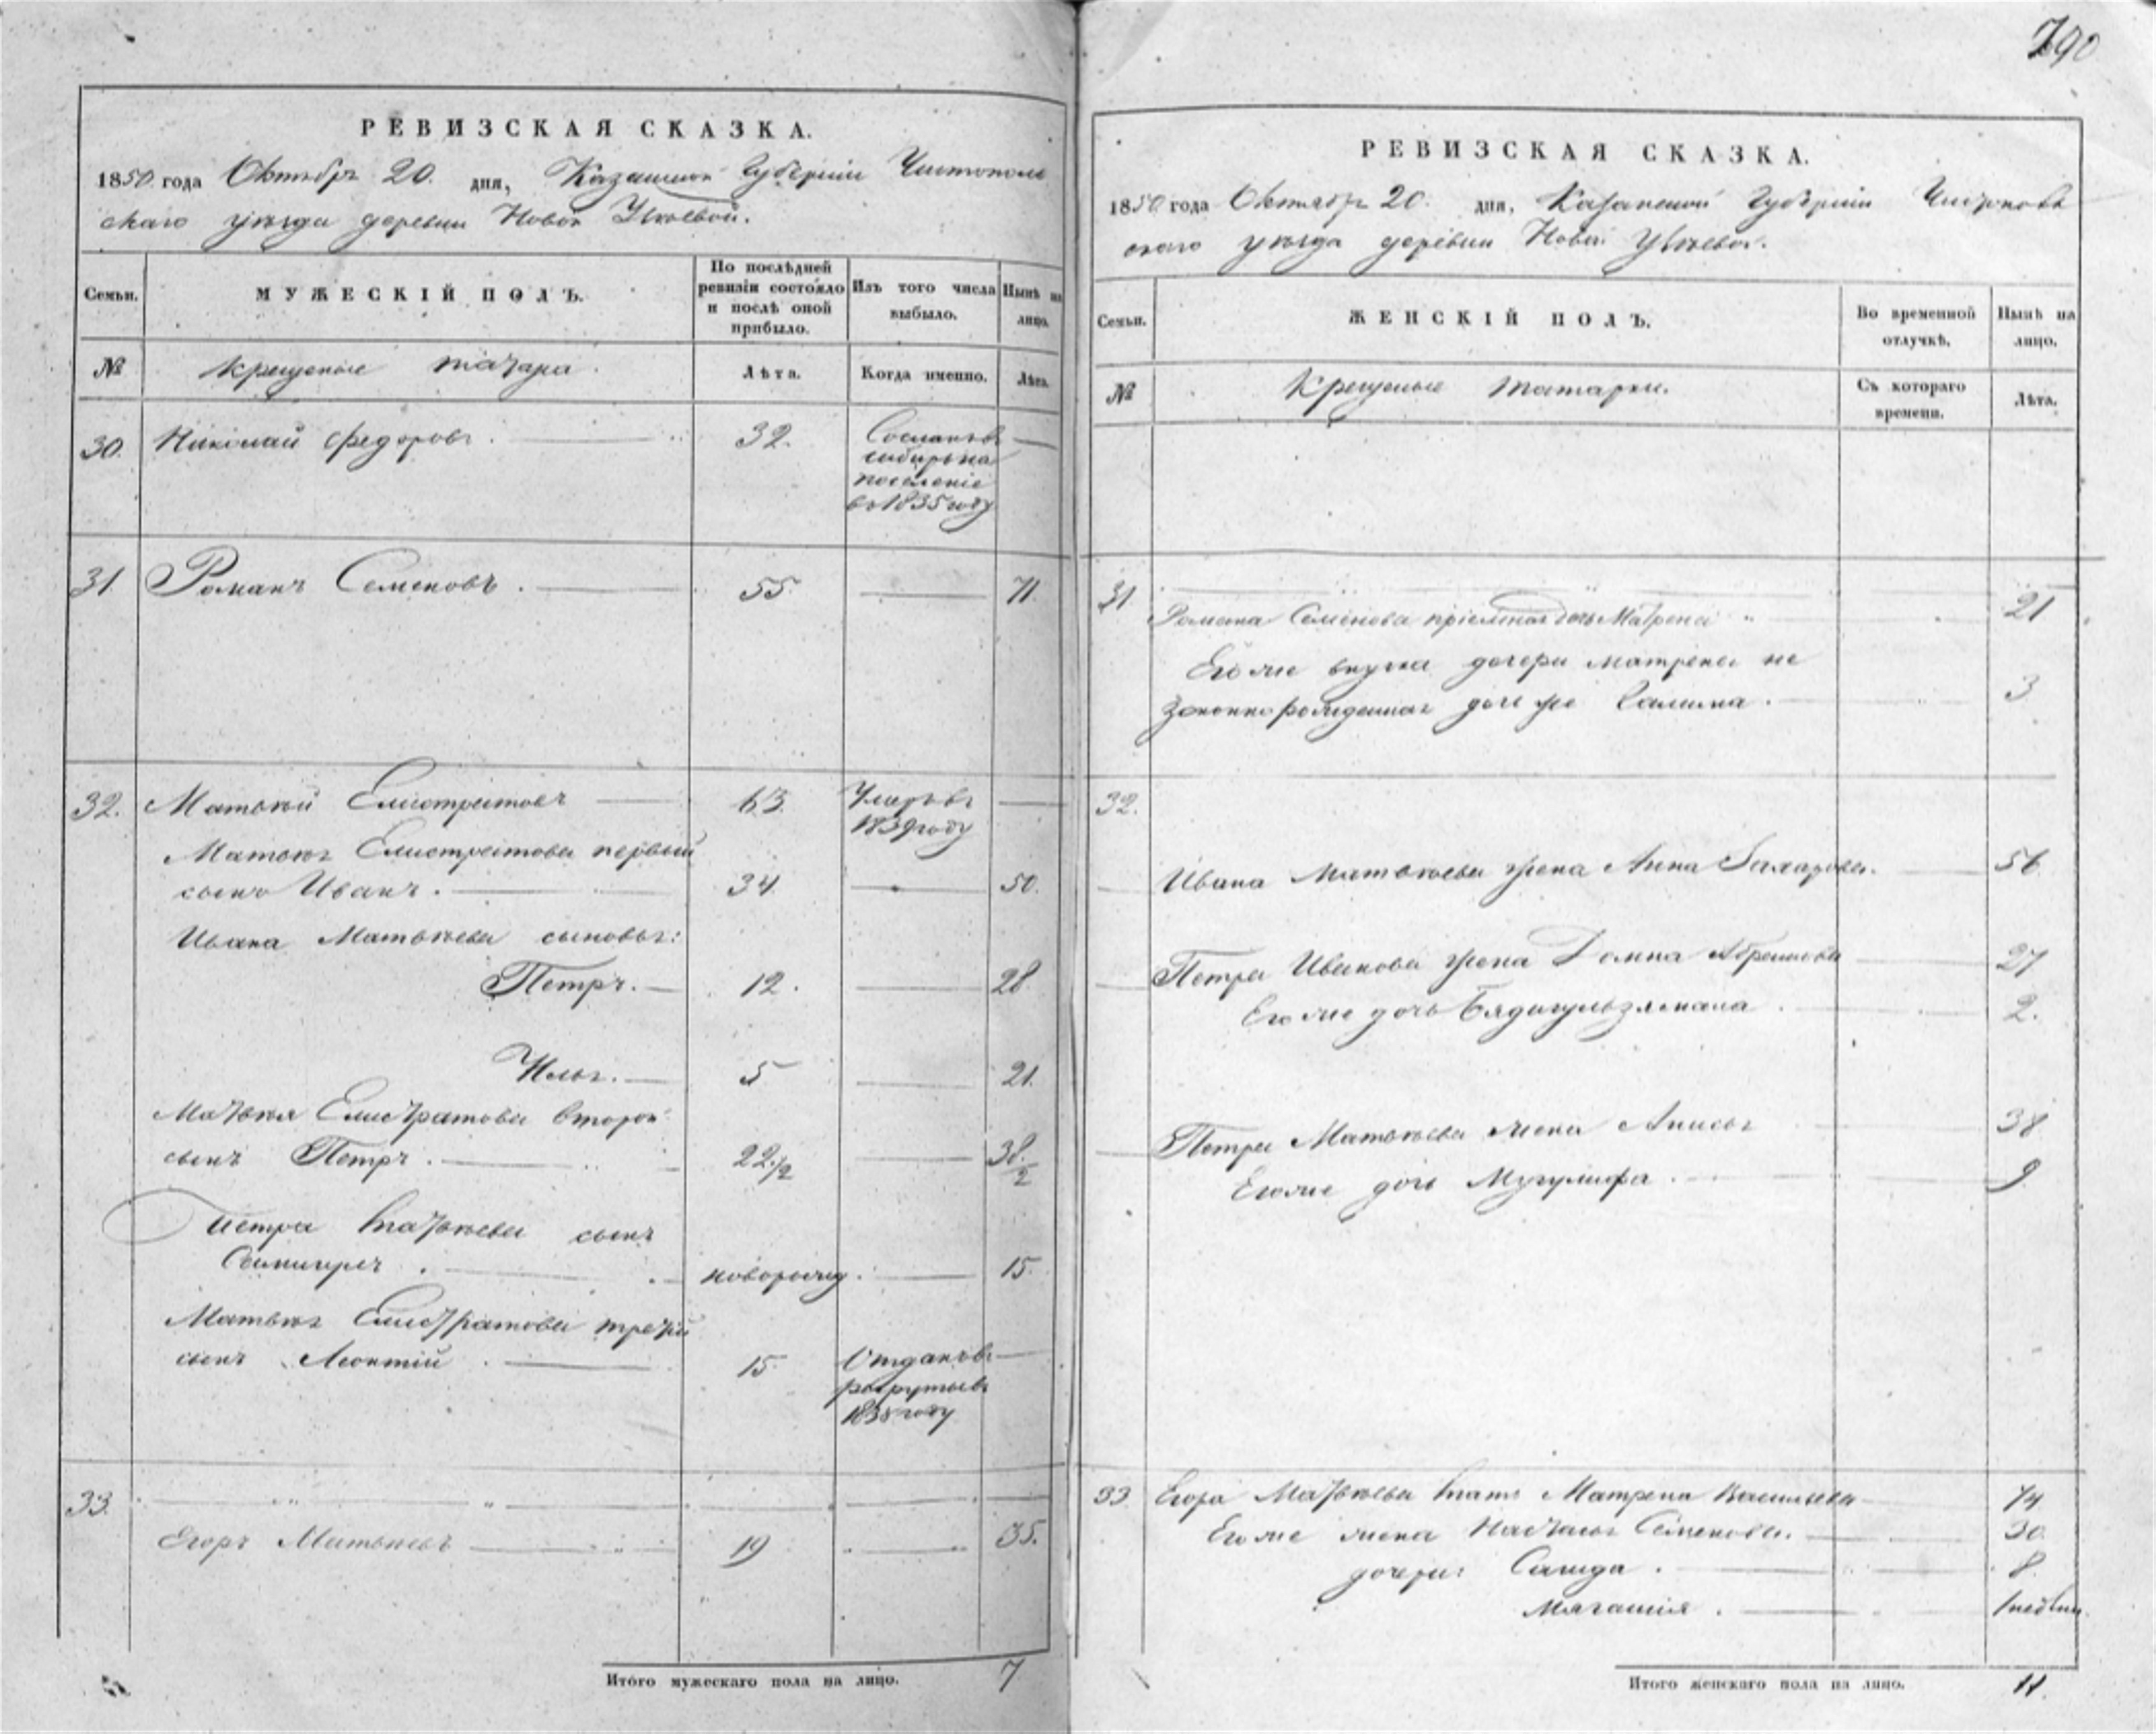 790
РЕВИЗСКАЯ СКАЗКА.
1850 года Октябр 20. дня, Казанской Губерніи Чистополь
скаго уѣзда деревни Новой
Семьи.
МУЖЕСКІЙ ПОЛЪ.
По послѣдней ревизіи состояло и послѣ оной прибыло.
Изъ того числа выбыло.
Нынѣ на лицо.
№
крещеные татара.
Лѣта.
Когда именно.
Лѣта.
30. Николай Федоровъ. 32. Сосланъ въ
сибирь на
поселеніе
въ 1835 году
31 Романъ Семеновъ. 55. 71.
32. Матвѣй Елистратовъ 63. Умеръ въ
1839 году
Матвѣя Елистратова первый
сынъ Иванъ. 34. 50.
Ивана Матвѣева сыновья:
Петръ. 12. 28
Илья. 5 21.
Матвѣя Елистратова второй
сынъ Петръ. 22 1/2 38 1/2
Петра Матвѣева сынъ
новорожд. 15.
Матвѣя Елистратова третій
сынъ Леонтій 15 Отданъ въ
рекруты въ
1838 году
33.
Егоръ Матвѣевъ 19 35.
Итого мужескаго пола на лицо. 7
РЕВИЗСКАЯ СКАЗКА.
1850 года Октябр 20. дня, Казанской Губерніи Чистополь
скаго уѣзда деревни Новой
Семьи.
ЖЕНСКІЙ ПОЛЪ.
Во временной отлучкѣ.
Нынѣ на лицо.
№
Крещеные татарки.
Съ котораго времени.
Лѣта.
31 Романа Семенова пріемная дочь Матрена 21
Его же внучка дочери Матрены не
законно рожденная дочь же Салима. 3
32.
Ивана Матвѣева жена Анна Захарова. 56
Петра Иванова жена Домна Абрамова 27
Его же дочь Бядигульзямала. 2.
Петра Матвѣева жена Анисья 38
Его же дочь Мугулифа. 9
33 Егора Матвѣева мать Матрена Васильева 74
Его же жена Настасья Семенова. 30
дочери: Саида. 8.
1 нед
Итого женскаго пола на лицо. 11.